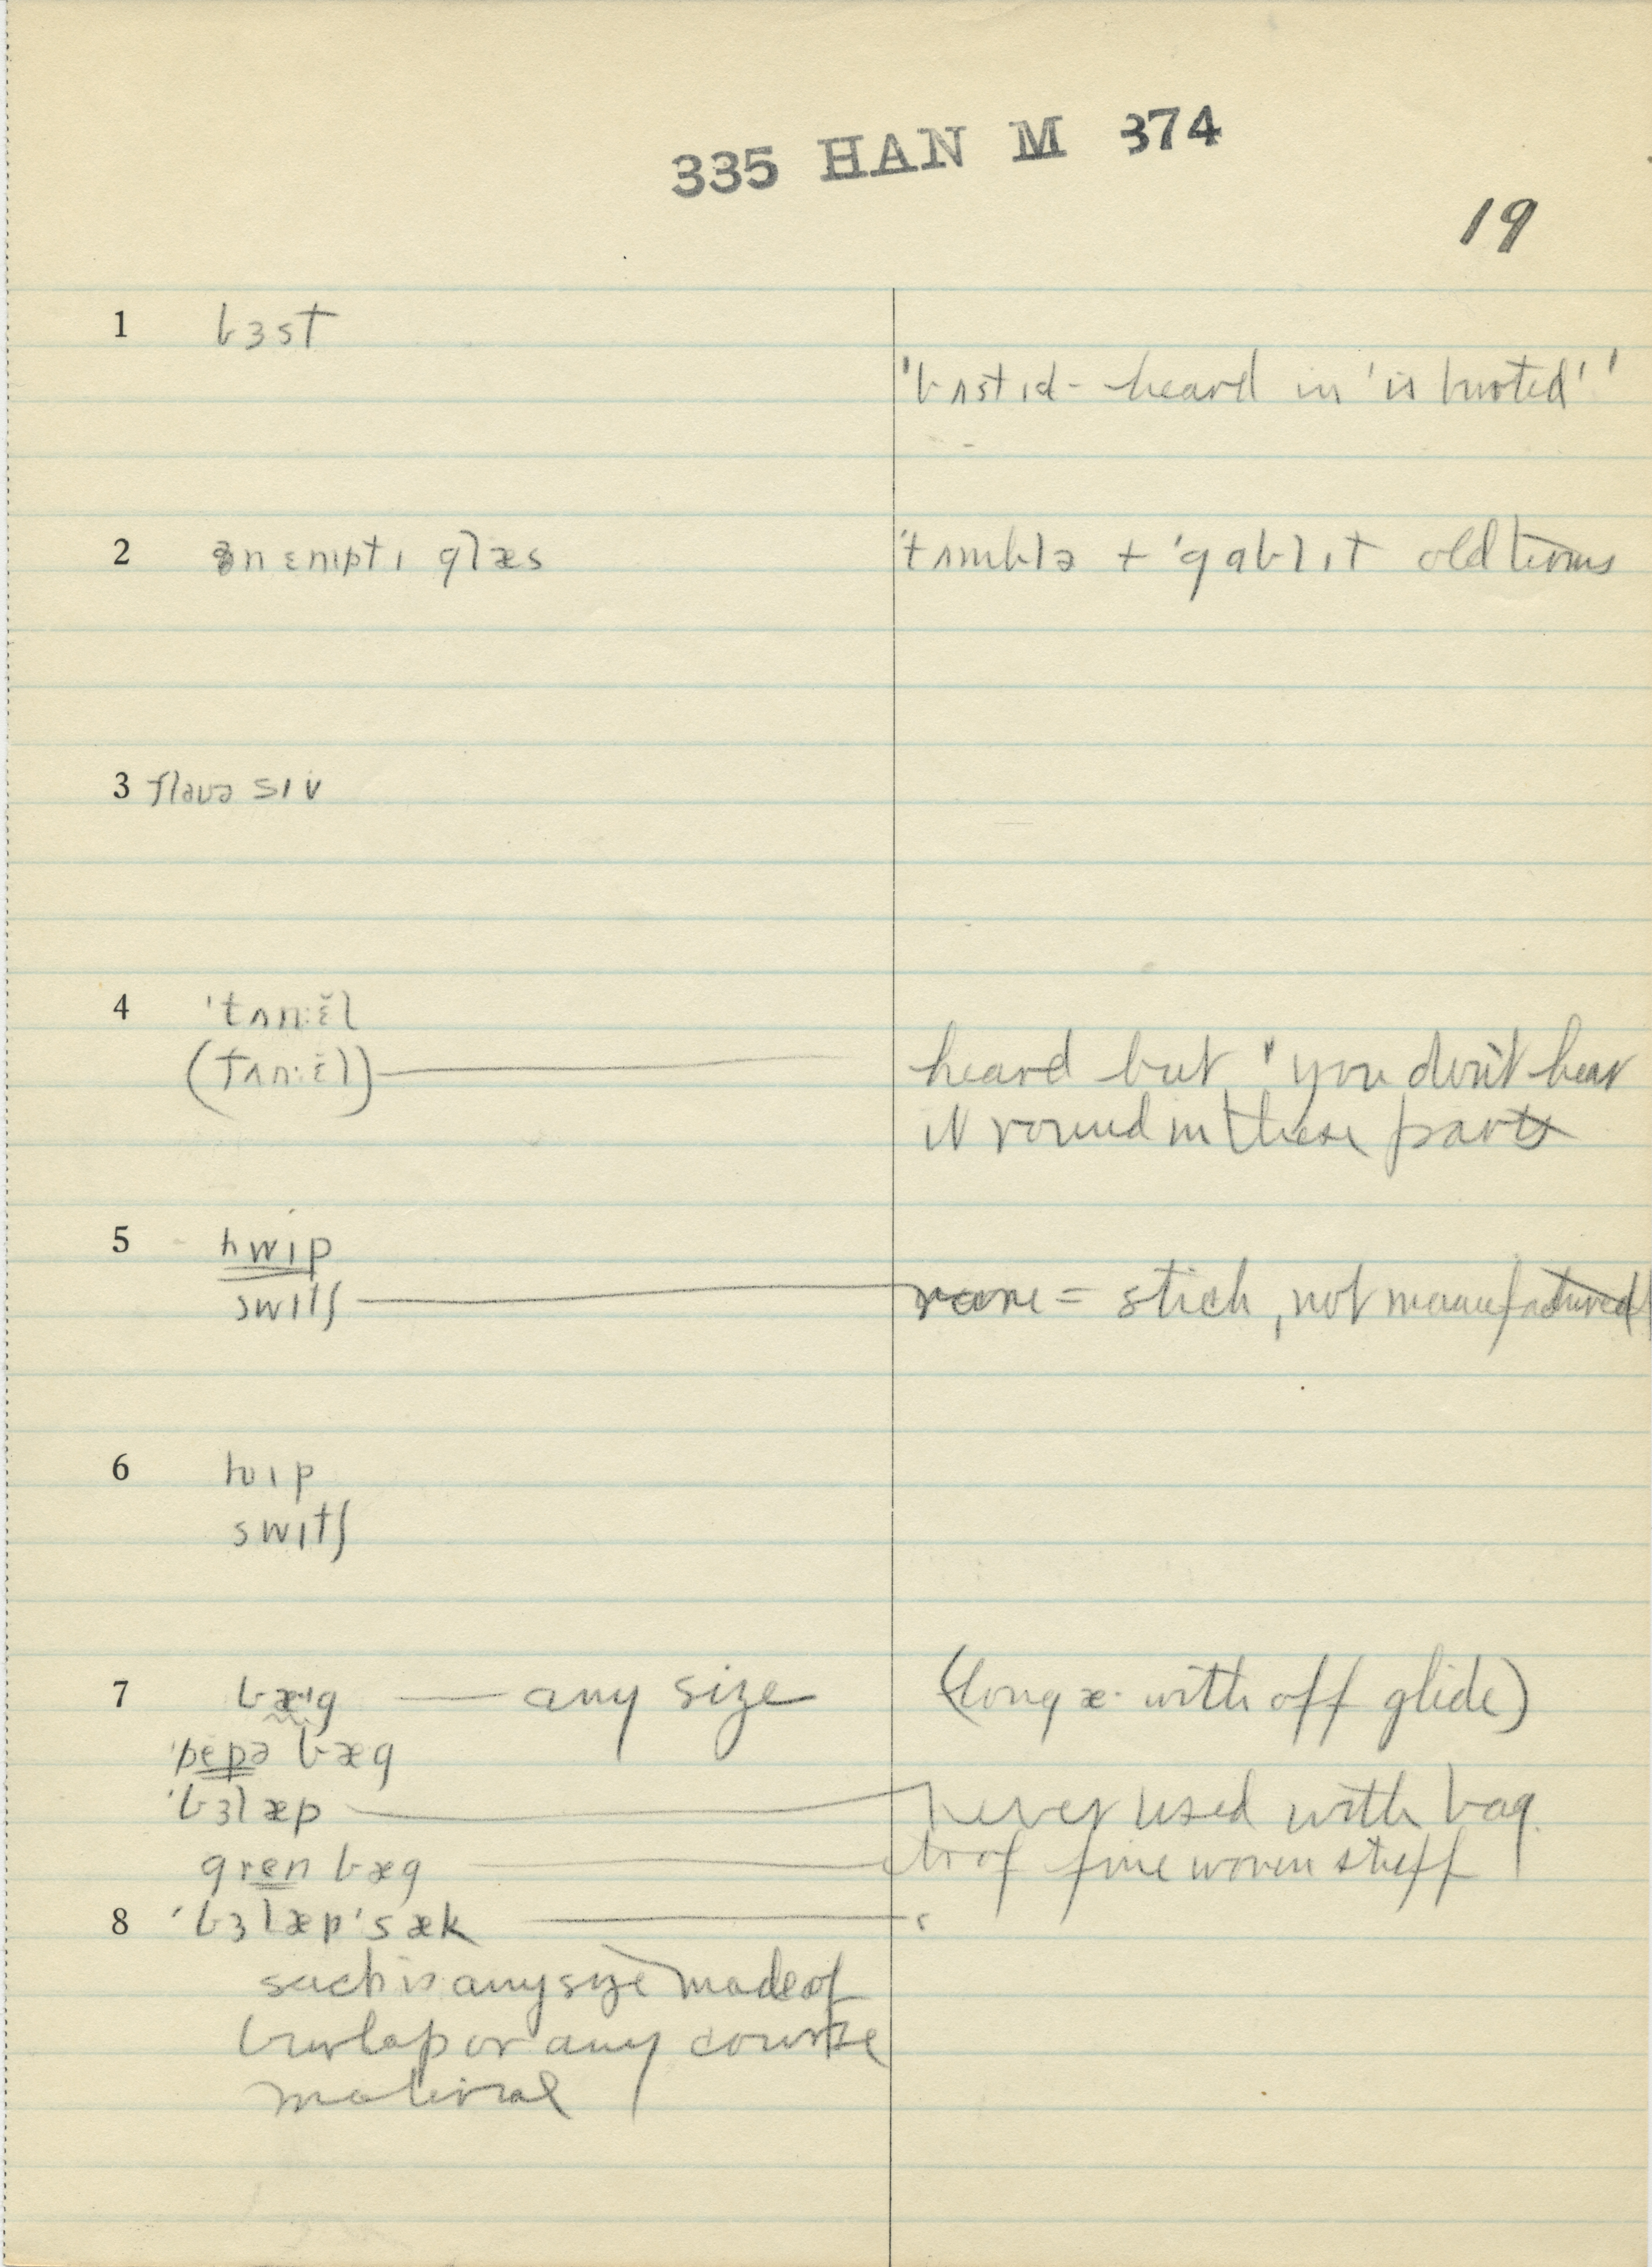 335 HAN M 374
19
1 bɜst
'bʌstɪd - heard in 'is busted' '
2 ən ɛmptɪ glæs 'tʌmblə + 'gablɪt old terms
3 flavə sɪv
4 'tʌn:ɛ̆l
(tʌn:ɛ̆l) heard but 'you don't hear
it round in these parts
5 hwɪp
swɪtʃ rare = stick, not manufactured
6 hwɪp
swɪtʃ
7 bæ·ɪg — any size (long æ· with off glide)
'pepə bæg
'bɜlæp never used with bag.
gren bæg of fine woven stuff
8 'bɜlæp'sæk
sack is any size made of
burlap or any course
material